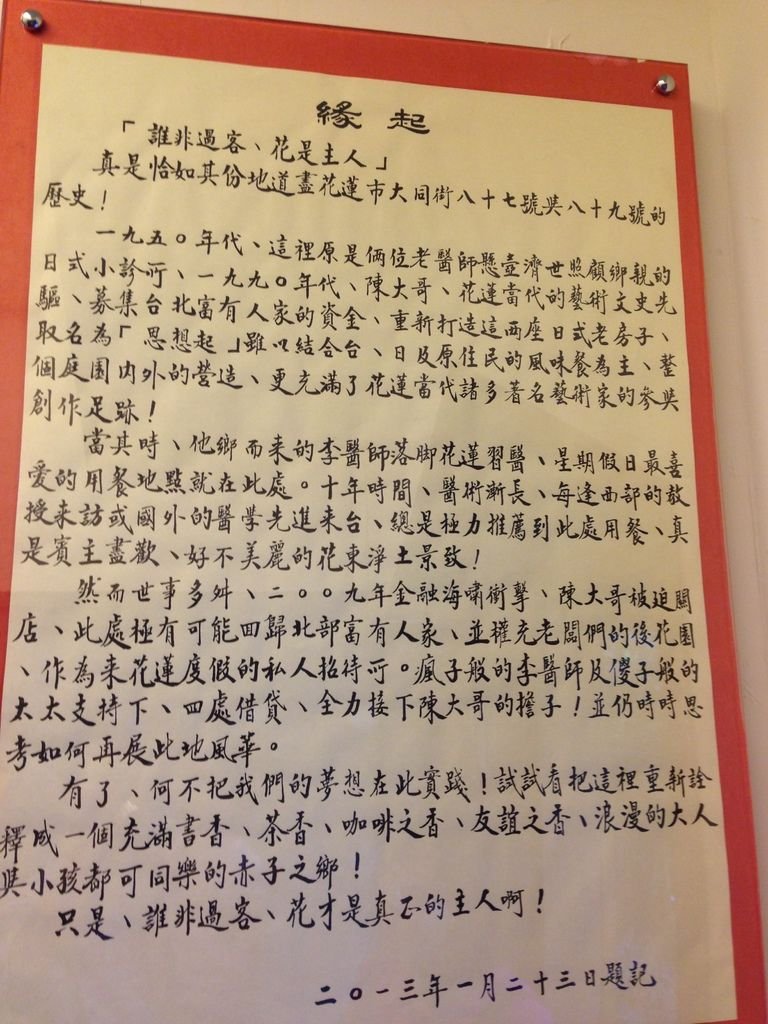 緣起
「誰非過客、花是主人」
真是恰如其份地道盡花蓮市大同街八十七號與八十九號的
歷史！
一九五〇年代、這裡原是倆位老醫師懸壺濟世照顧鄉親的
日式小診所、一九九〇年代、陳大哥、花蓮當代的藝術文史先
驅、募集台北富有人家的資金、重新打造這兩座日式老房子、
取名為「思想起」雖以結合台、日及原住民的風味餐為主、整
個庭園內外的營造、更充滿了花蓮當代諸多著名藝術家的參與
創作足跡！
當其時、他鄉而來的李醫師落腳花蓮習醫、星期假日最喜
愛的用餐地點就在此處。十年時間、醫術漸長、每逢西部的教
授來訪或國外的醫學先進來台、總是極力推薦到此處用餐、真
是賓主盡歡、好不美麗的花東淨土景致！
然而世事多舛、二〇〇九年金融海嘯衝擊、陳大哥被迫關
店、此處極有可能回歸北部富有人家、並權充老闆們的後花園
、作為來花蓮度假的私人招待所。瘋子般的李醫師及傻子般的
太太支持下、四處借貸、全力接下陳大哥的擔子！並仍時時思
考如何再展此地風華。
有了、何不把我們的夢想在此實踐！試試看把這裡重新詮
釋成一個充滿書香、茶香、咖啡之香、友誼之香、浪漫的大人
與小孩都可同樂的赤子之鄉！
只是、誰非過客、花才是真正的主人啊！
二〇一三年一月二十三日題記